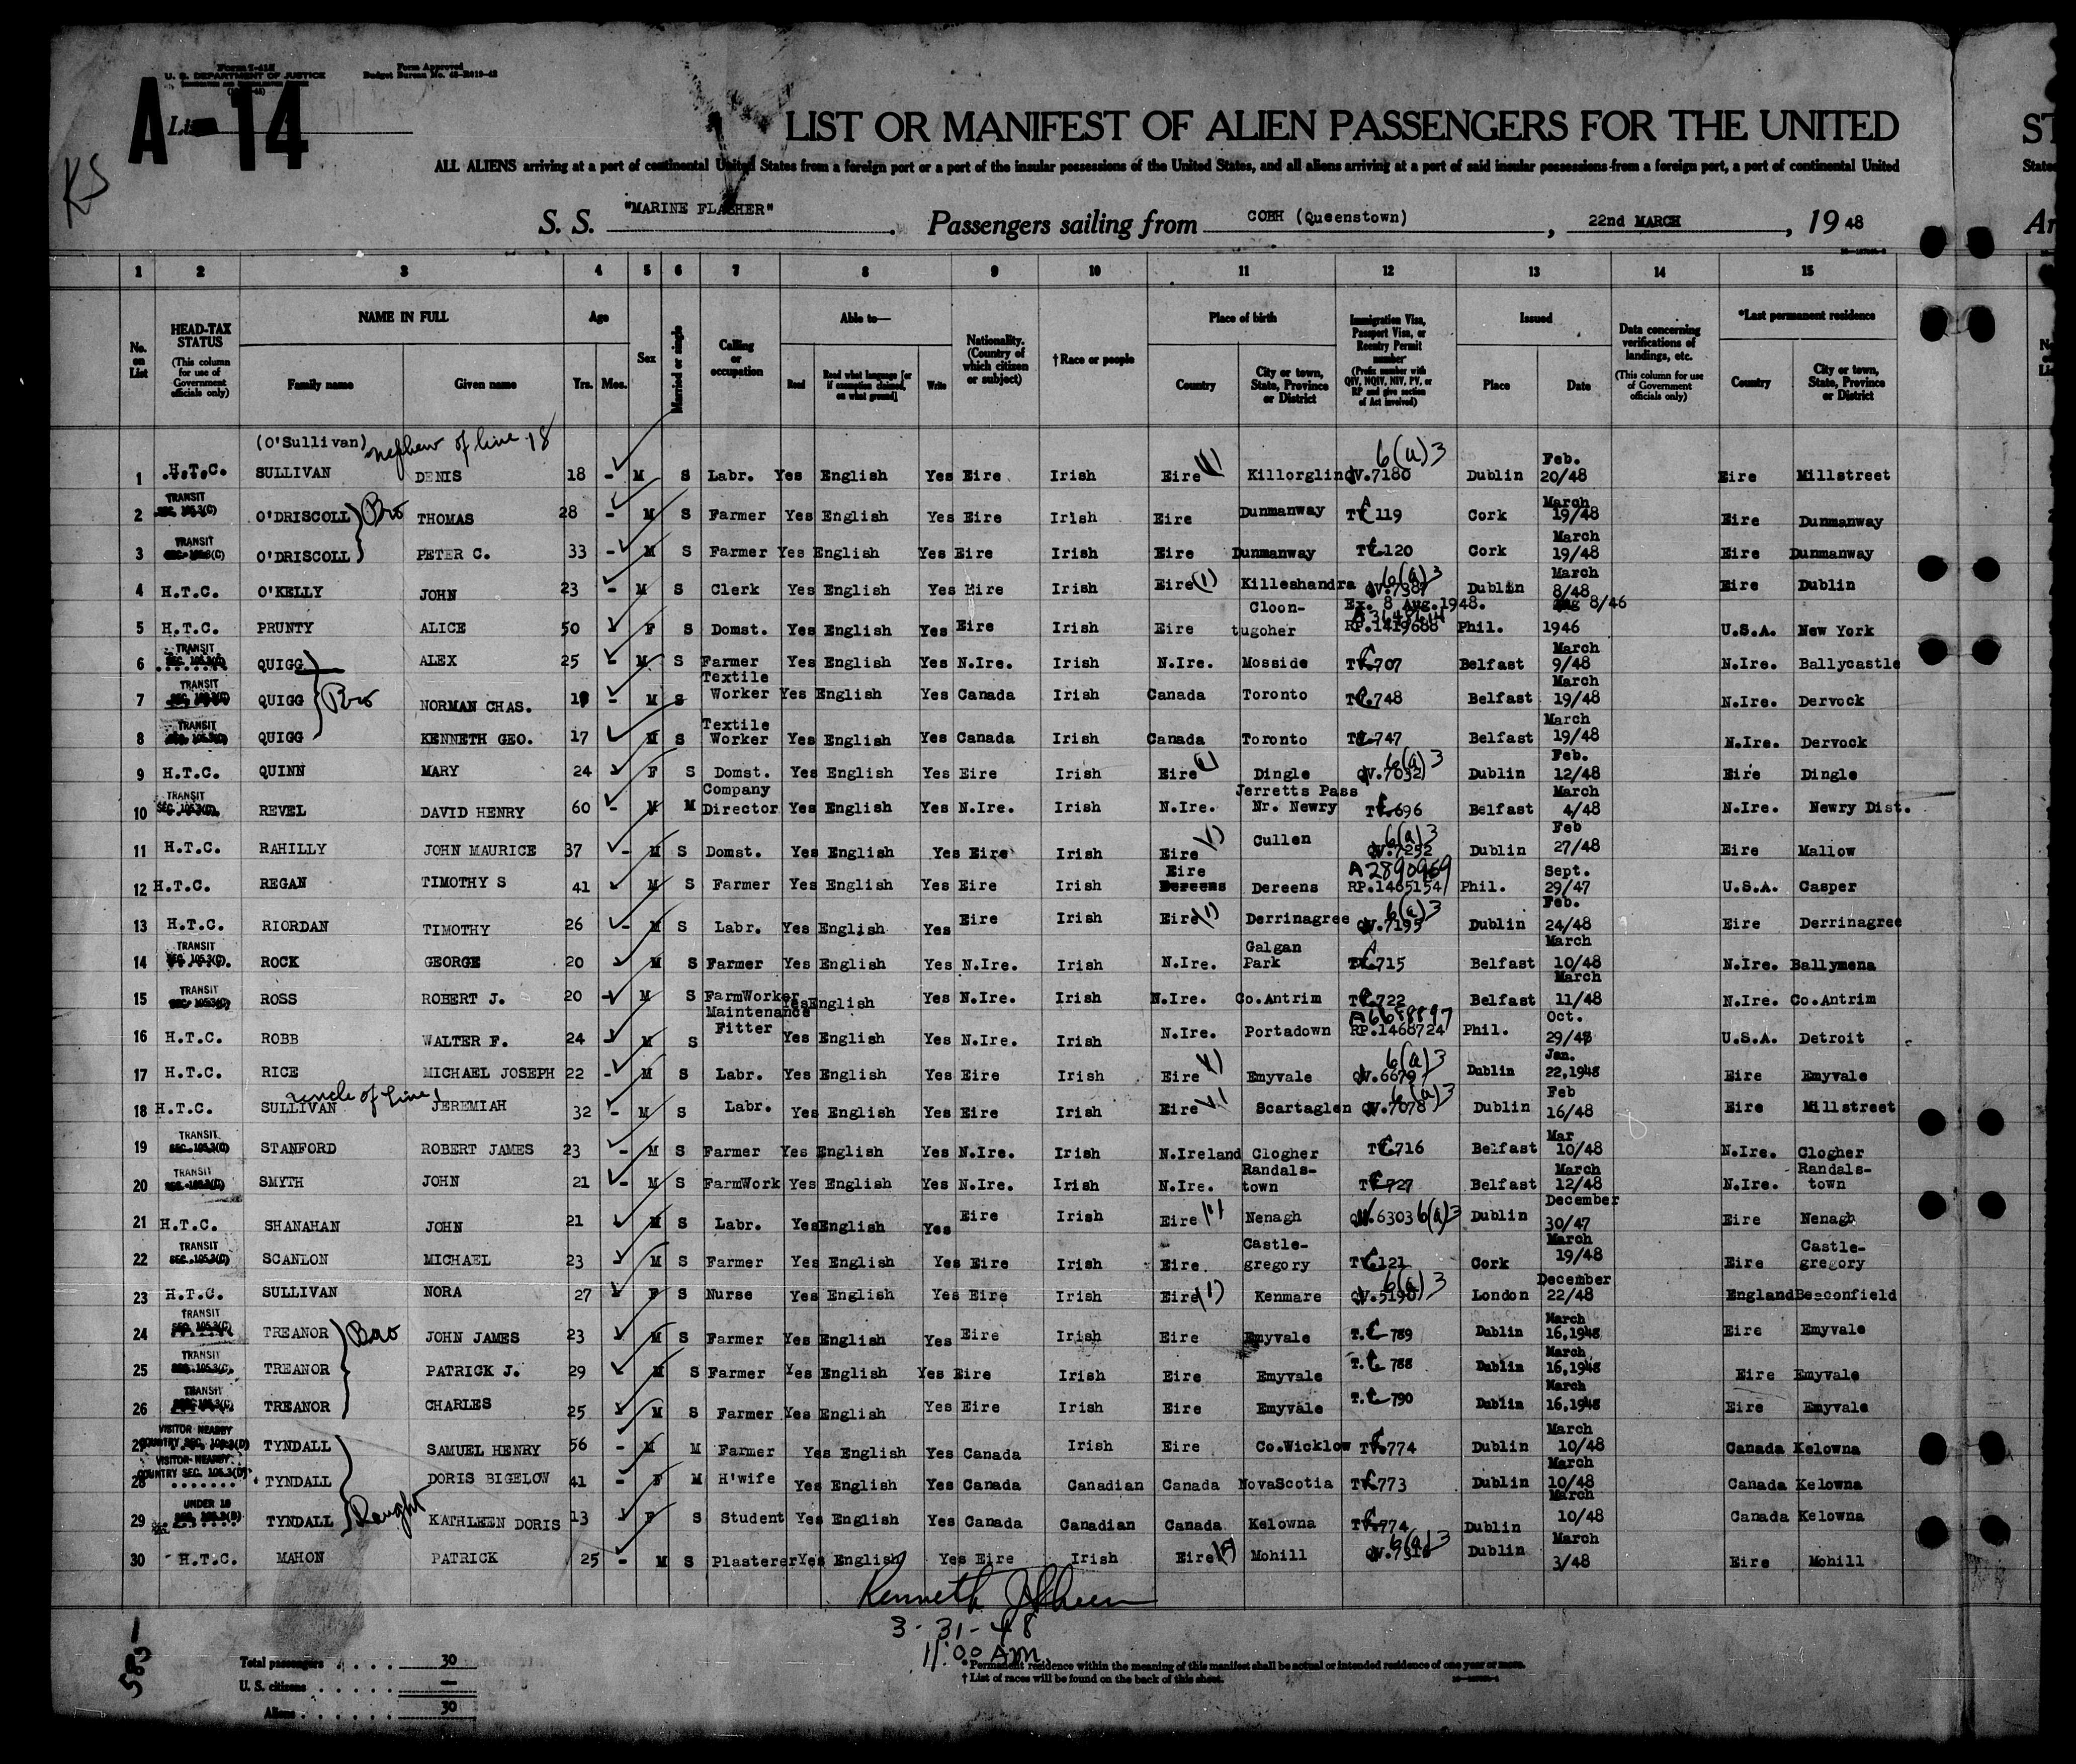 Form I-415
U. S. DEPARTMENT OF JUSTICE
Form Approved
Budget Bureau No. 43-R019-42
A 14
List
KS
LIST OR MANIFEST OF ALIEN PASSENGERS FOR THE UNITED
ST
ALL ALIENS arriving at a port of continental United States from a foreign port or a port of the insular possessions of the United States, and all aliens arriving at a port of said insular possessions from a foreign port, a port of continental United
States
S. S. "MARINE FLASHER" . Passengers sailing from COBH (Queenstown) , 22nd MARCH , 19 48
Ar
1 2 3 4 5 6 7 8 9 10 11 12 13 14 15
No. on List
HEAD-TAX STATUS (This column for use of Government officials only)
NAME IN FULL Family name Given name
Age Yrs. Mos.
Sex
Married or single
Calling or occupation
Able to— Read Read what language [or if exemption claimed, on what ground] Write
Nationality. (Country of which citizen or subject)
†Race or people
Place of birth Country City or town, State, Province or District
Immigration Visa, Passport Visa, or Reentry Permit number (Prefix number with QIV, NQIV, NIV, PV, or RP and give section of Act involved)
Issued Place Date
Data concerning verifications of landings, etc. (This column for use of Government officials only)
*Last permanent residence Country City or town, State, Province or District
(O'Sullivan) nephew of line 18 6(a)3 Feb.
1 H.T.C. SULLIVAN DENIS 18 - M S Labr. Yes English Yes Eire Irish Eire Killorglin QV.7180 Dublin 20/48 Eire Millstreet
TRANSIT SEC. 105.3(C) March
2 O'DRISCOLL Bro THOMAS 28 - M S Farmer Yes English Yes Eire Irish Eire Dunmanway 119 Cork 19/48 Eire Dunmanway
TRANSIT SEC. 105.3(C) March
3 O'DRISCOLL PETER C. 33 - M S Farmer Yes English Yes Eire Irish Eire Dunmanway 120 Cork 19/48 Eire Dunmanway
6(a)3 March
4 H.T.C. O'KELLY JOHN 23 - M S Clerk Yes English Yes Eire Irish Eire (1) Killeshandra QV.7387 Dublin 8/48 Eire Dublin
Cloon- Ex. 8 Aug.1948. Aug 8/46
5 H.T.C. PRUNTY ALICE 50 F S Domst. Yes English Yes Eire Irish Eire tugoher RP.1419688 Phil. 1946 U.S.A. New York
TRANSIT SEC. 105.3(C) March
6 QUIGG ALEX 25 - M S Farmer Yes English Yes N.Ire. Irish N.Ire. Mosside 707 Belfast 9/48 N.Ire. Ballycastle
TRANSIT SEC. 105.3(C) Textile March
7 QUIGG Bro NORMAN CHAS. - M S Worker Yes English Yes Canada Irish Canada Toronto 748 Belfast 19/48 N.Ire. Dervock
TRANSIT SEC. 105.3(C) Textile March
8 QUIGG KENNETH GEO. 17 M S Worker Yes English Yes Canada Irish Canada Toronto 747 Belfast 19/48 N.Ire. Dervock
6(a)3 Feb.
9 H.T.C. QUINN MARY 24 - F S Domst. Yes English Yes Eire Irish Eire Dingle QV.7032 Dublin 12/48 Eire Dingle
TRANSIT SEC. 105.3(C) Company Jerretts Pass March
10 REVEL DAVID HENRY 60 - M M Director Yes English Yes N.Ire. Irish N.Ire. Nr. Newry 696 Belfast 4/48 N.Ire. Newry Dist.
6(a)3 Feb
11 H.T.C. RAHILLY JOHN MAURICE 37 - M S Domst. Yes English Yes Eire Irish Eire Cullen QV.7252 Dublin 27/48 Eire Mallow
Eire A2890969 Sept.
12 H.T.C. REGAN TIMOTHY S 41 M S Farmer Yes English Yes Eire Irish Dereens Dereens RP.1465154 Phil. 29/47 U.S.A. Casper
6(a)3 Feb.
13 H.T.C. RIORDAN TIMOTHY 26 - M S Labr. Yes English Yes Eire Irish Eire (1) Derrinagree QV.7195 Dublin 24/48 Eire Derrinagree
TRANSIT SEC. 105.3(C) Galgan March
14 ROCK GEORGE 20 M S Farmer Yes English Yes N.Ire. Irish N.Ire. Park 715 Belfast 10/48 N.Ire. Ballymena
TRANSIT SEC. 105.3(C) March
15 ROSS ROBERT J. 20 M S FarmWorker Yes English Yes N.Ire. Irish N.Ire. Co.Antrim 722 Belfast 11/48 N.Ire. Co.Antrim
Maintenance Oct.
16 H.T.C. ROBB WALTER F. 24 M S Fitter Yes English Yes N.Ire. Irish N.Ire. Portadown RP.1468724 Phil. 29/48 U.S.A. Detroit
6(a)3 Jan.
17 H.T.C. RICE MICHAEL JOSEPH 22 - M S Labr. Yes English Yes Eire Irish Eire Emyvale QV.6679 Dublin 22,1948 Eire Emyvale
uncle of line 1 6(a)3 Feb
18 H.T.C. SULLIVAN JEREMIAH 32 - M S Labr. Yes English Yes Eire Irish Eire Scartaglen QV.7078 Dublin 16/48 Eire Millstreet
TRANSIT SEC. 105.3(C) Mar
19 STANFORD ROBERT JAMES 23 - M S Farmer Yes English Yes N.Ire. Irish N.Ireland Clogher 716 Belfast 10/48 N.Ire. Clogher
TRANSIT SEC. 105.3(C) Randals- March Randals-
20 SMYTH JOHN 21 - M S FarmWork Yes English Yes N.Ire. Irish N.Ire. town 727 Belfast 12/48 N.Ire. town
December
21 H.T.C. SHANAHAN JOHN 21 M S Labr. Yes English Yes Eire Irish Eire Nenagh 6303 6(a)3 Dublin 30/47 Eire Nenagh
TRANSIT SEC. 105.3(C) Castle- March Castle-
22 SCANLON MICHAEL 23 - M S Farmer Yes English Yes Eire Irish Eire. gregory 121 Cork 19/48 Eire gregory
6(a)3 December
23 H.T.C. SULLIVAN NORA 27 F S Nurse Yes English Yes Eire Irish Eire (1) Kenmare QV.5190 London 22/48 England Beaconfield
TRANSIT SEC. 105.3(C) March
24 TREANOR Bro JOHN JAMES 23 M S Farmer Yes English Yes Eire Irish Eire Emyvale 789 Dublin 16,1948 Eire Emyvale
TRANSIT SEC. 105.3(C) March
25 TREANOR PATRICK J. 29 M S Farmer Yes English Yes Eire Irish Eire Emyvale 788 Dublin 16,1948 Eire Emyvale
TRANSIT SEC. 105.3(C) March
26 TREANOR CHARLES 25 M S Farmer Yes English Yes Eire Irish Eire Emyvale 790 Dublin 16,1948 Eire Emyvale
VISITOR NEARBY COUNTRY SEC. 105.3(D) March
27 TYNDALL SAMUEL HENRY 56 - M M Farmer Yes English Yes Canada Irish Eire Co.Wicklow 774 Dublin 10/48 Canada Kelowna
VISITOR NEARBY COUNTRY SEC. 105.3(D) March
28 TYNDALL DORIS BIGELOW 41 - F M H'wife Yes English Yes Canada Canadian Canada NovaScotia 773 Dublin 10/48 Canada Kelowna
UNDER 16 March
29 TYNDALL Daught KATHLEEN DORIS 13 F S Student Yes English Yes Canada Canadian Canada Kelowna 774 Dublin 10/48 Canada Kelowna
6(a)3 March
30 H.T.C. MAHON PATRICK 25 - M S Plasterer Yes English Yes Eire Irish Eire Mohill Dublin 3/48 Eire Mohill
Kenneth
3-31-48
11:00 AM.
Total passengers . . . . 30
U. S. citizens . . . . . —
Aliens . . . . . . 30
* Permanent residence within the meaning of this manifest shall be actual or intended residence of one year or more.
† List of races will be found on the back of this sheet.